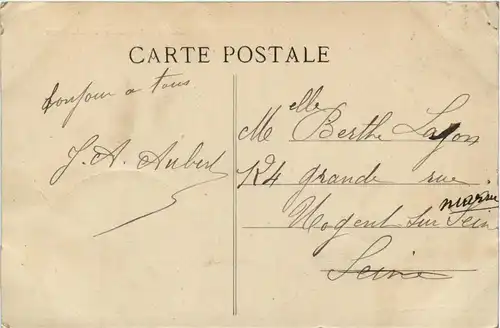 CARTE POSTALE
bonjour a tous
J. A. Aubert
Melle Berthe Lajon
124 grande rue
marne
Nogent sur Sein
Seine